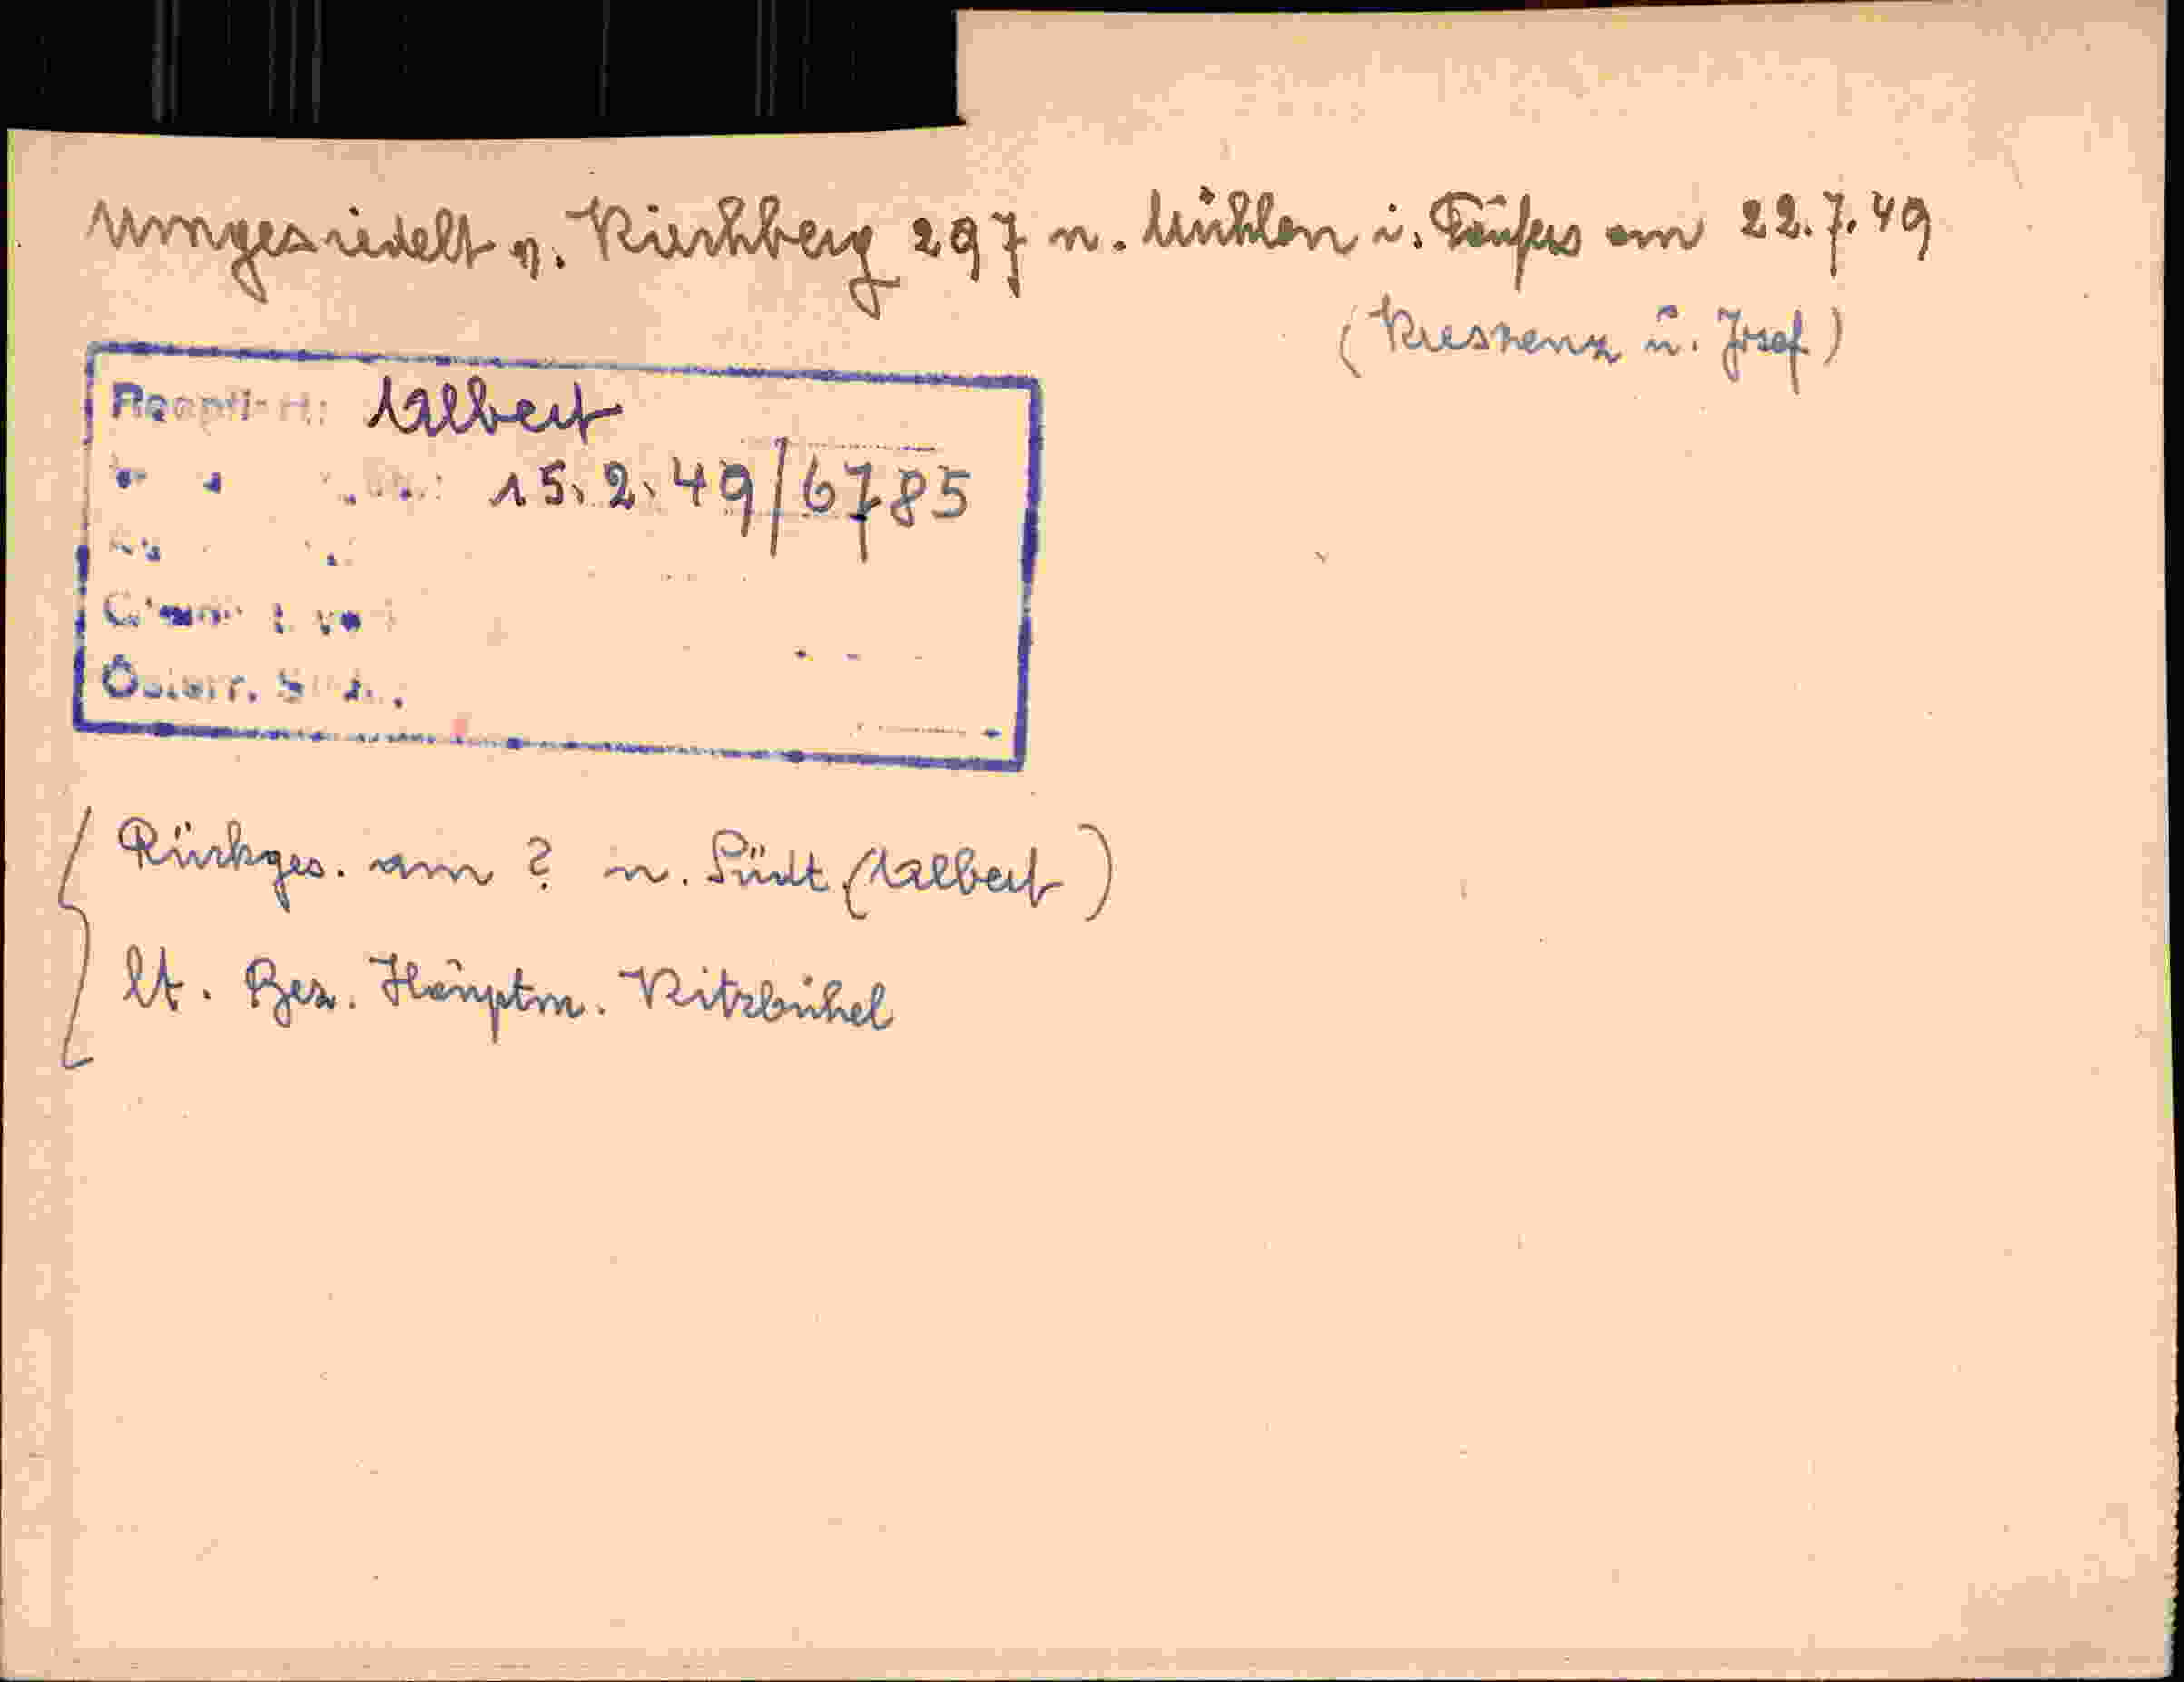 Umgesiedelt v. Kirchberg 297 n. Mühlen i. Taufers am 22.7.49
(Kreszenz u. Josef)
Reoptiert: Albert
15.2.49/6785
Österr.
Rückges. am ? n. Südt. (Albert)
lt. Bez. Hauptm. Kitzbühel